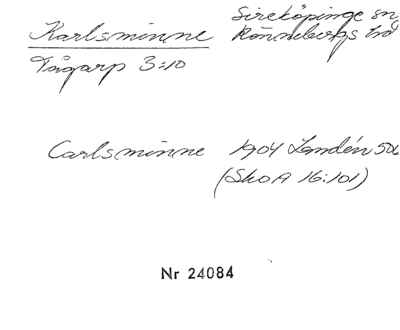 Karlsminne Sireköpinge sn
Tågarp 3:10 Rönnebergs hd
Carlsminne 1904 Landén 506
(SkoA 16:101)
Nr 24084